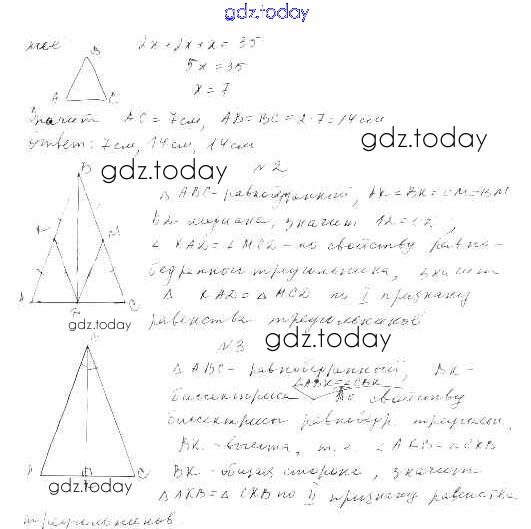 gdz.today
2x+2x+x=35
5x=35
B
A C
x=7
Значит AC=7см, AB=BC=2·7=14см
Ответ: 7см, 14см, 14см
gdz.today
gdz.today
№2
B
Δ ABC-равнобедренный, AK=BK=CM=BM
BD-медиана, значит AD=CD,
∠ KAD=∠MCD-по свойству равно-
бедренного треугольника, значит
A C
Δ KAD=Δ MCD по I признаку
gdz.today
равенства треугольников
gdz.today
№3
Δ ABC-равнобедренный, BK-
∠ABK=∠CBK
биссектриса по свойству
биссектрисы равнобедр. треугольн,
BK-высота, т.е. ∠AKB=∠CKB
A C
BK-общая сторона, значит
gdz.today
ΔAKB=Δ CKB по II признаку равенства
треугольников.